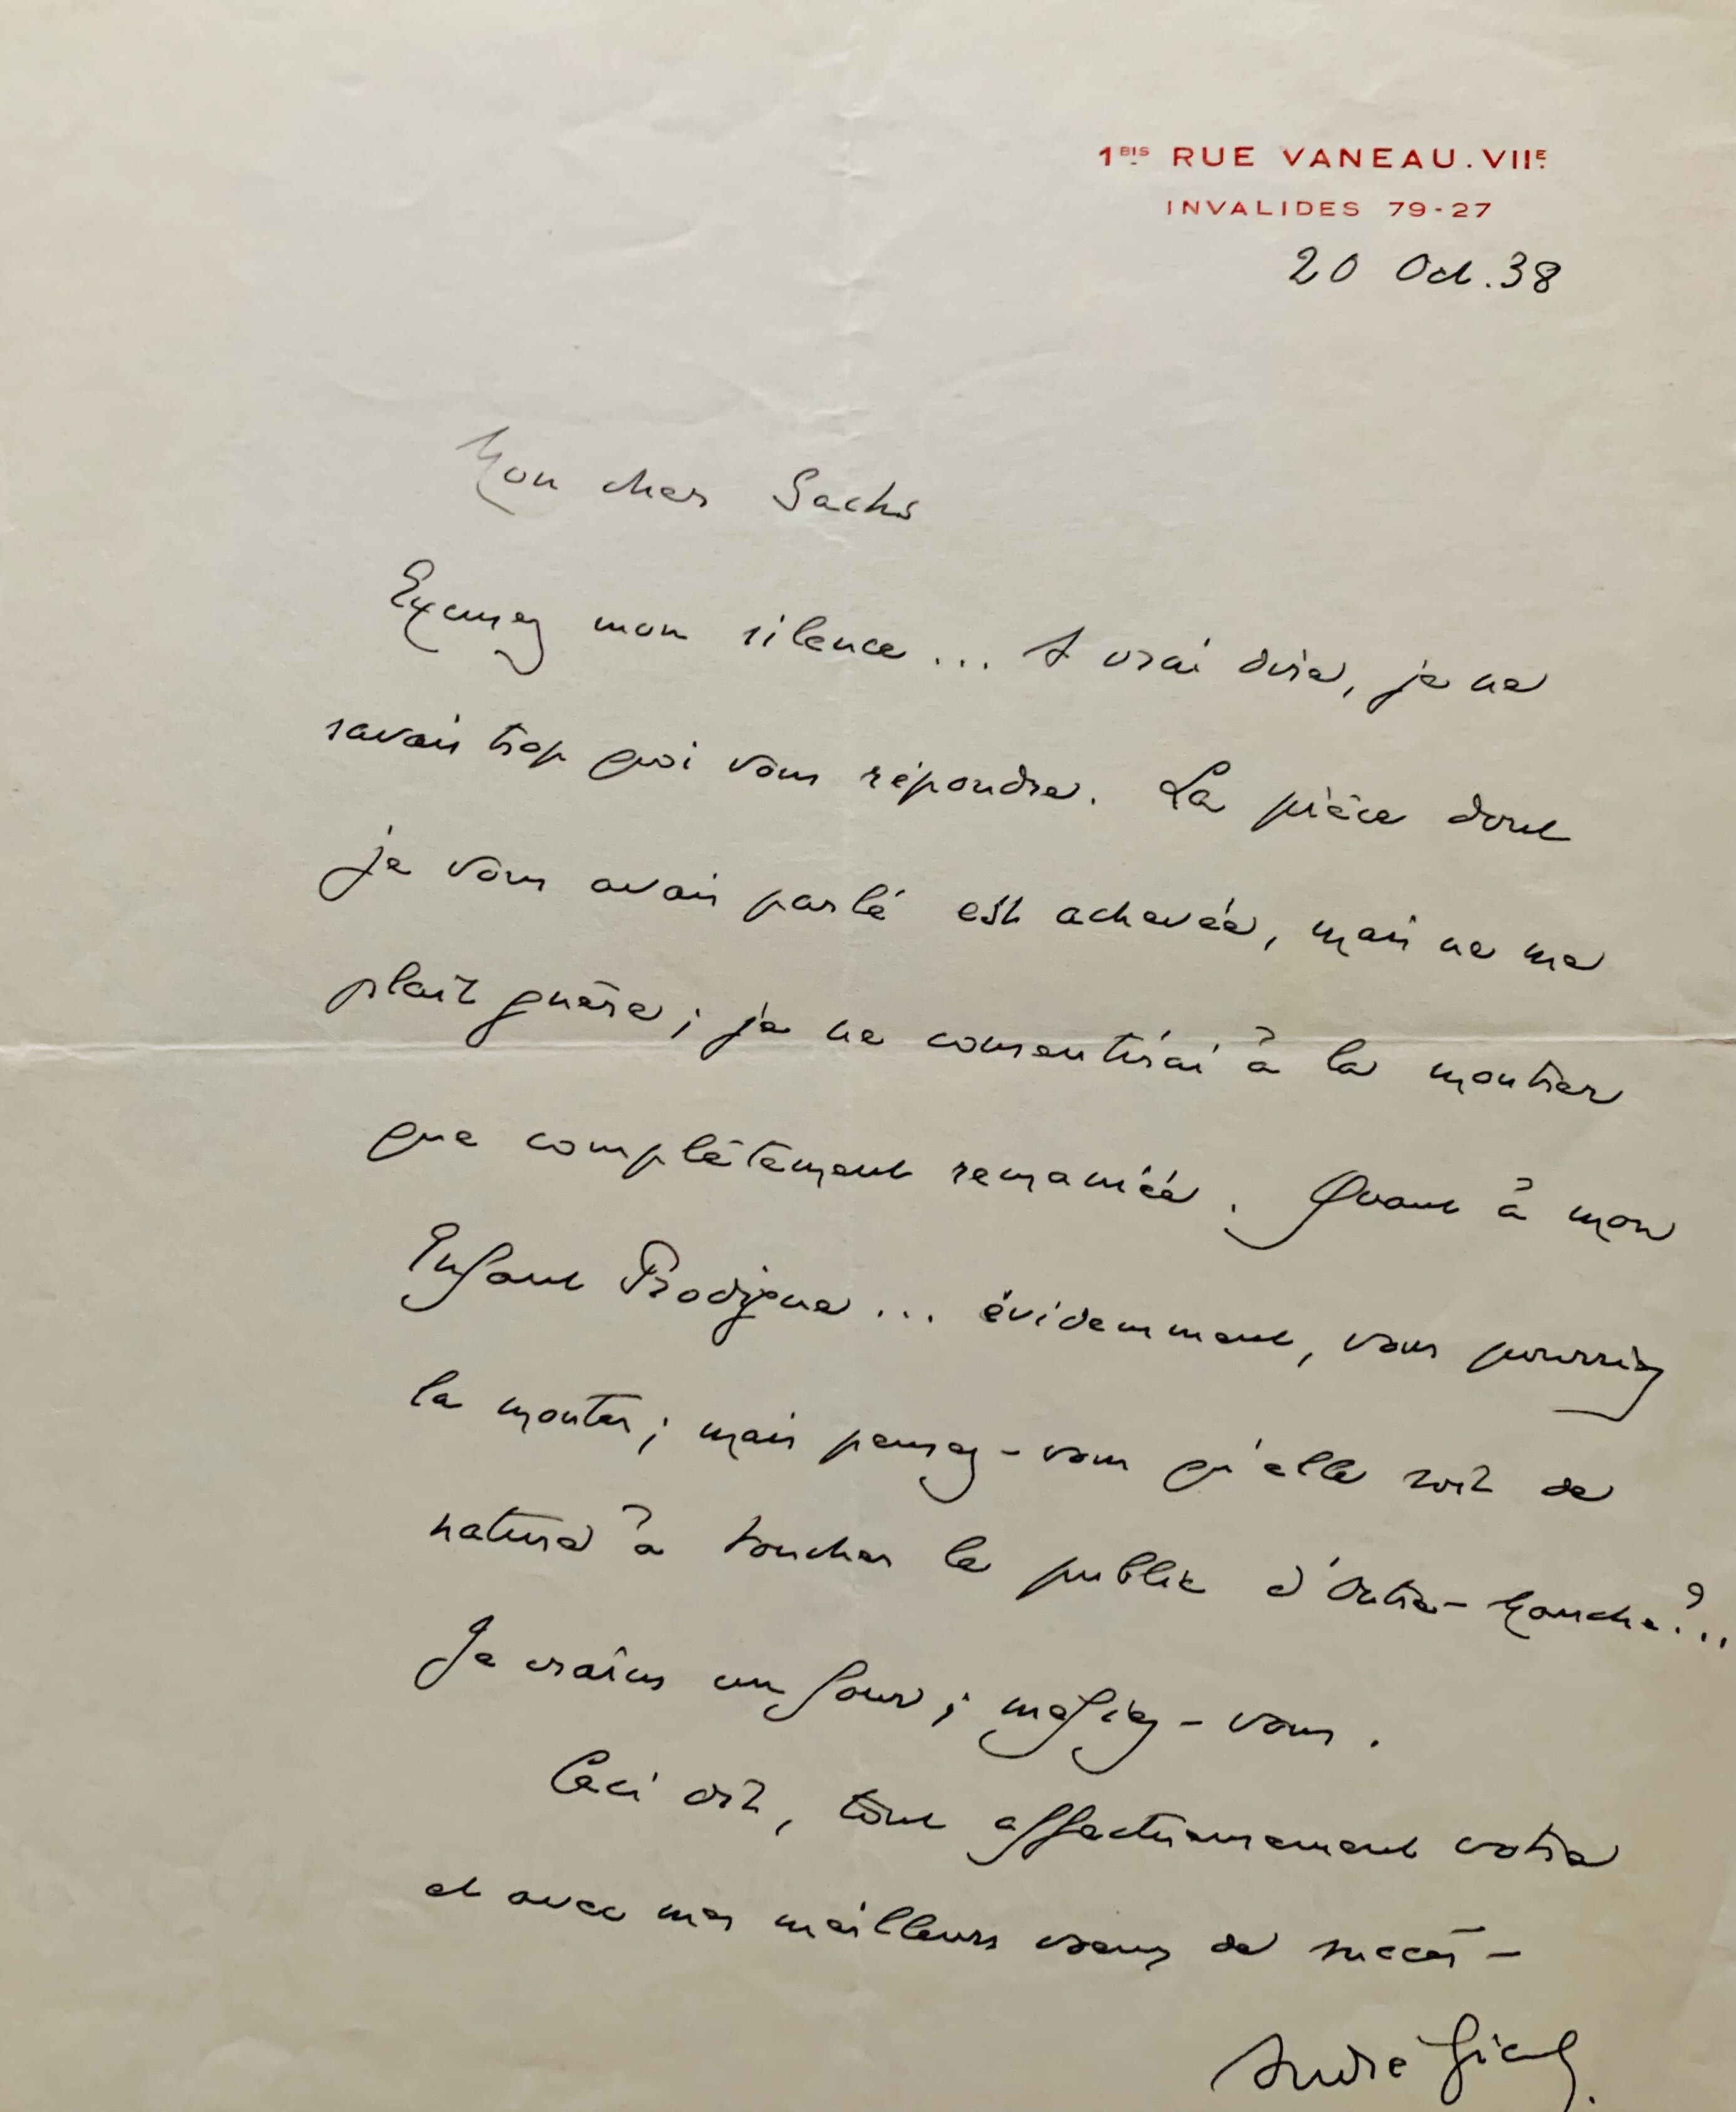 1BIS RUE VANEAU.VIIE
INVALIDES 79-27
20 Oct.38
Mon cher Sachs
Excusez mon silence... A vrai dire, je ne
savais trop quoi vous répondre. La pièce dont
je vous avais parlé est achevée, mais ne me
plaît guère; je ne consentirai à la montrer
que complètement remaniée. Quant à mon
Enfant Prodigue... évidemment, vous pourriez
la monter; mais pensez-vous qu'elle soit de
nature à toucher le public d'Outre-Manche?..
Je crains un four; méfiez-vous.
Ceci dit, tout affectueusement votre
et avec mes meilleurs vœux de succès-
André Gide.